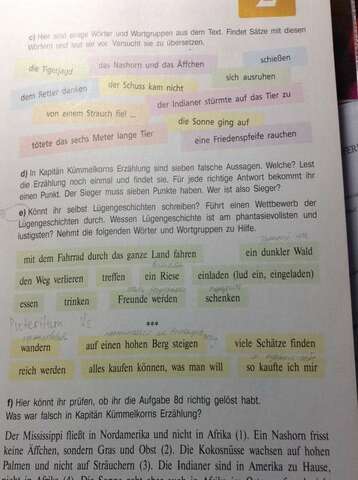 c) Hier sind einige Wörter und Wortgruppen aus dem Text. Findet Sätze mit diesen
Wörtern und lest sie vor. Versucht sie zu übersetzen.
die Tigerjagd das Nashorn und das Äffchen schießen
dem Retter danken der Schuss kam nicht sich ausruhen
von einem Strauch fiel ... der Indianer stürmte auf das Tier zu
die Sonne ging auf
tötete das sechs Meter lange Tier eine Friedenspfeife rauchen
d) In Kapitän Kümmelkorns Erzählung sind sieben falsche Aussagen. Welche? Lest
die Erzählung noch einmal und findet sie. Für jede richtige Antwort bekommt ihr
einen Punkt. Der Sieger muss sieben Punkte haben. Wer ist also Sieger?
e) Könnt ihr selbst Lügengeschichten schreiben? Führt einen Wettbewerb der
Lügengeschichten durch. Wessen Lügengeschichte ist am phantasievollsten und
lustigsten? Nehmt die folgenden Wörter und Wortgruppen zu Hilfe.
mit dem Fahrrad durch das ganze Land fahren ein dunkler Wald
den Weg verlieren treffen ein Riese einladen (lud ein, eingeladen)
essen trinken Freunde werden schenken
Präteritum
***
wandern auf einen hohen Berg steigen viele Schätze finden
reich werden alles kaufen können, was man will so kaufte ich mir
f) Hier könnt ihr prüfen, ob ihr die Aufgabe 8d richtig gelöst habt.
Was war falsch in Kapitän Kümmelkorns Erzählung?
Der Mississippi fließt in Nordamerika und nicht in Afrika (1). Ein Nashorn frisst
keine Äffchen, sondern Gras und Obst (2). Die Kokosnüsse wachsen auf hohen
Palmen und nicht auf Sträuchern (3). Die Indianer sind in Amerika zu Hause,
nicht in Afrika (4). Die Sonne geht